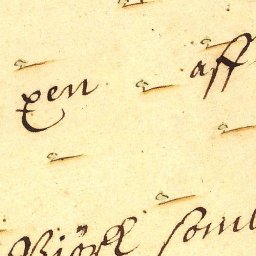 xen aff
Biörk som